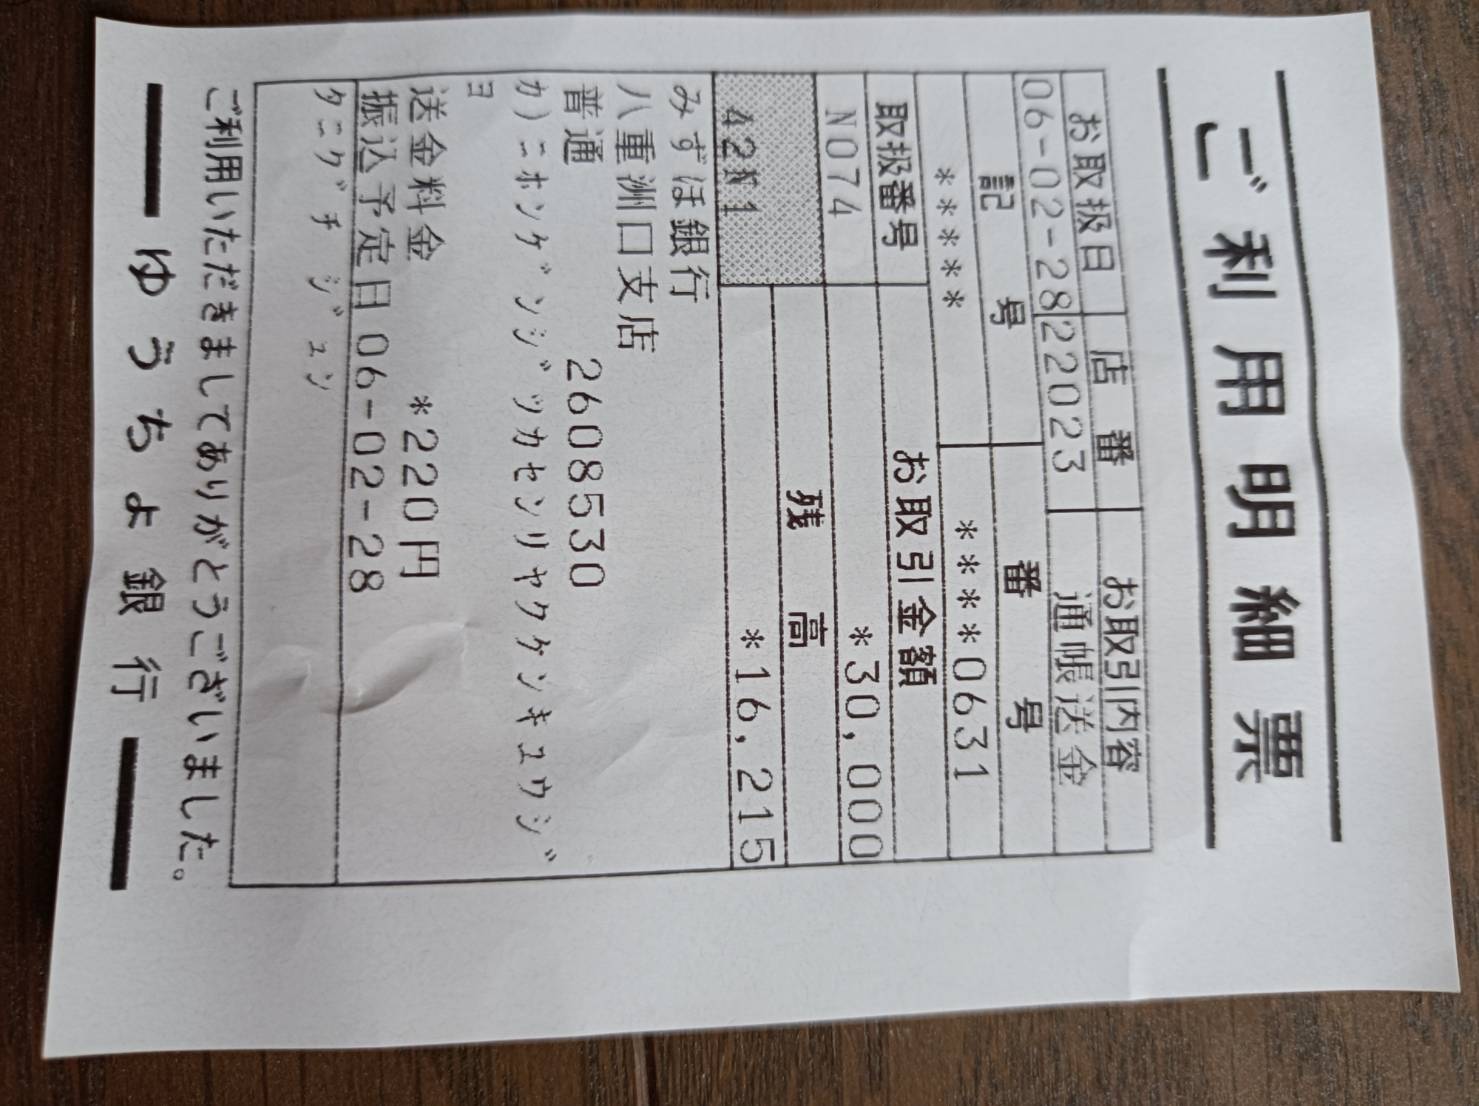 ご利用明細票
お取扱日 店番 お取引内容
06-02-28 22023 通帳送金
記号 番号
***** ****0631
取扱番号 お取引金額
N074 *30,000
残高
*16,215
みずほ銀行
八重洲口支店
普通 2608530
カ)ニホンケ゛ンシ゛ツカセンリヤクケンキユウシ゛
ヨ
送金料金 *220円
振込予定日06-02-28
タニク゛チ シ゛ユン
ご利用いただきましてありがとうございました。
ゆうちょ銀行